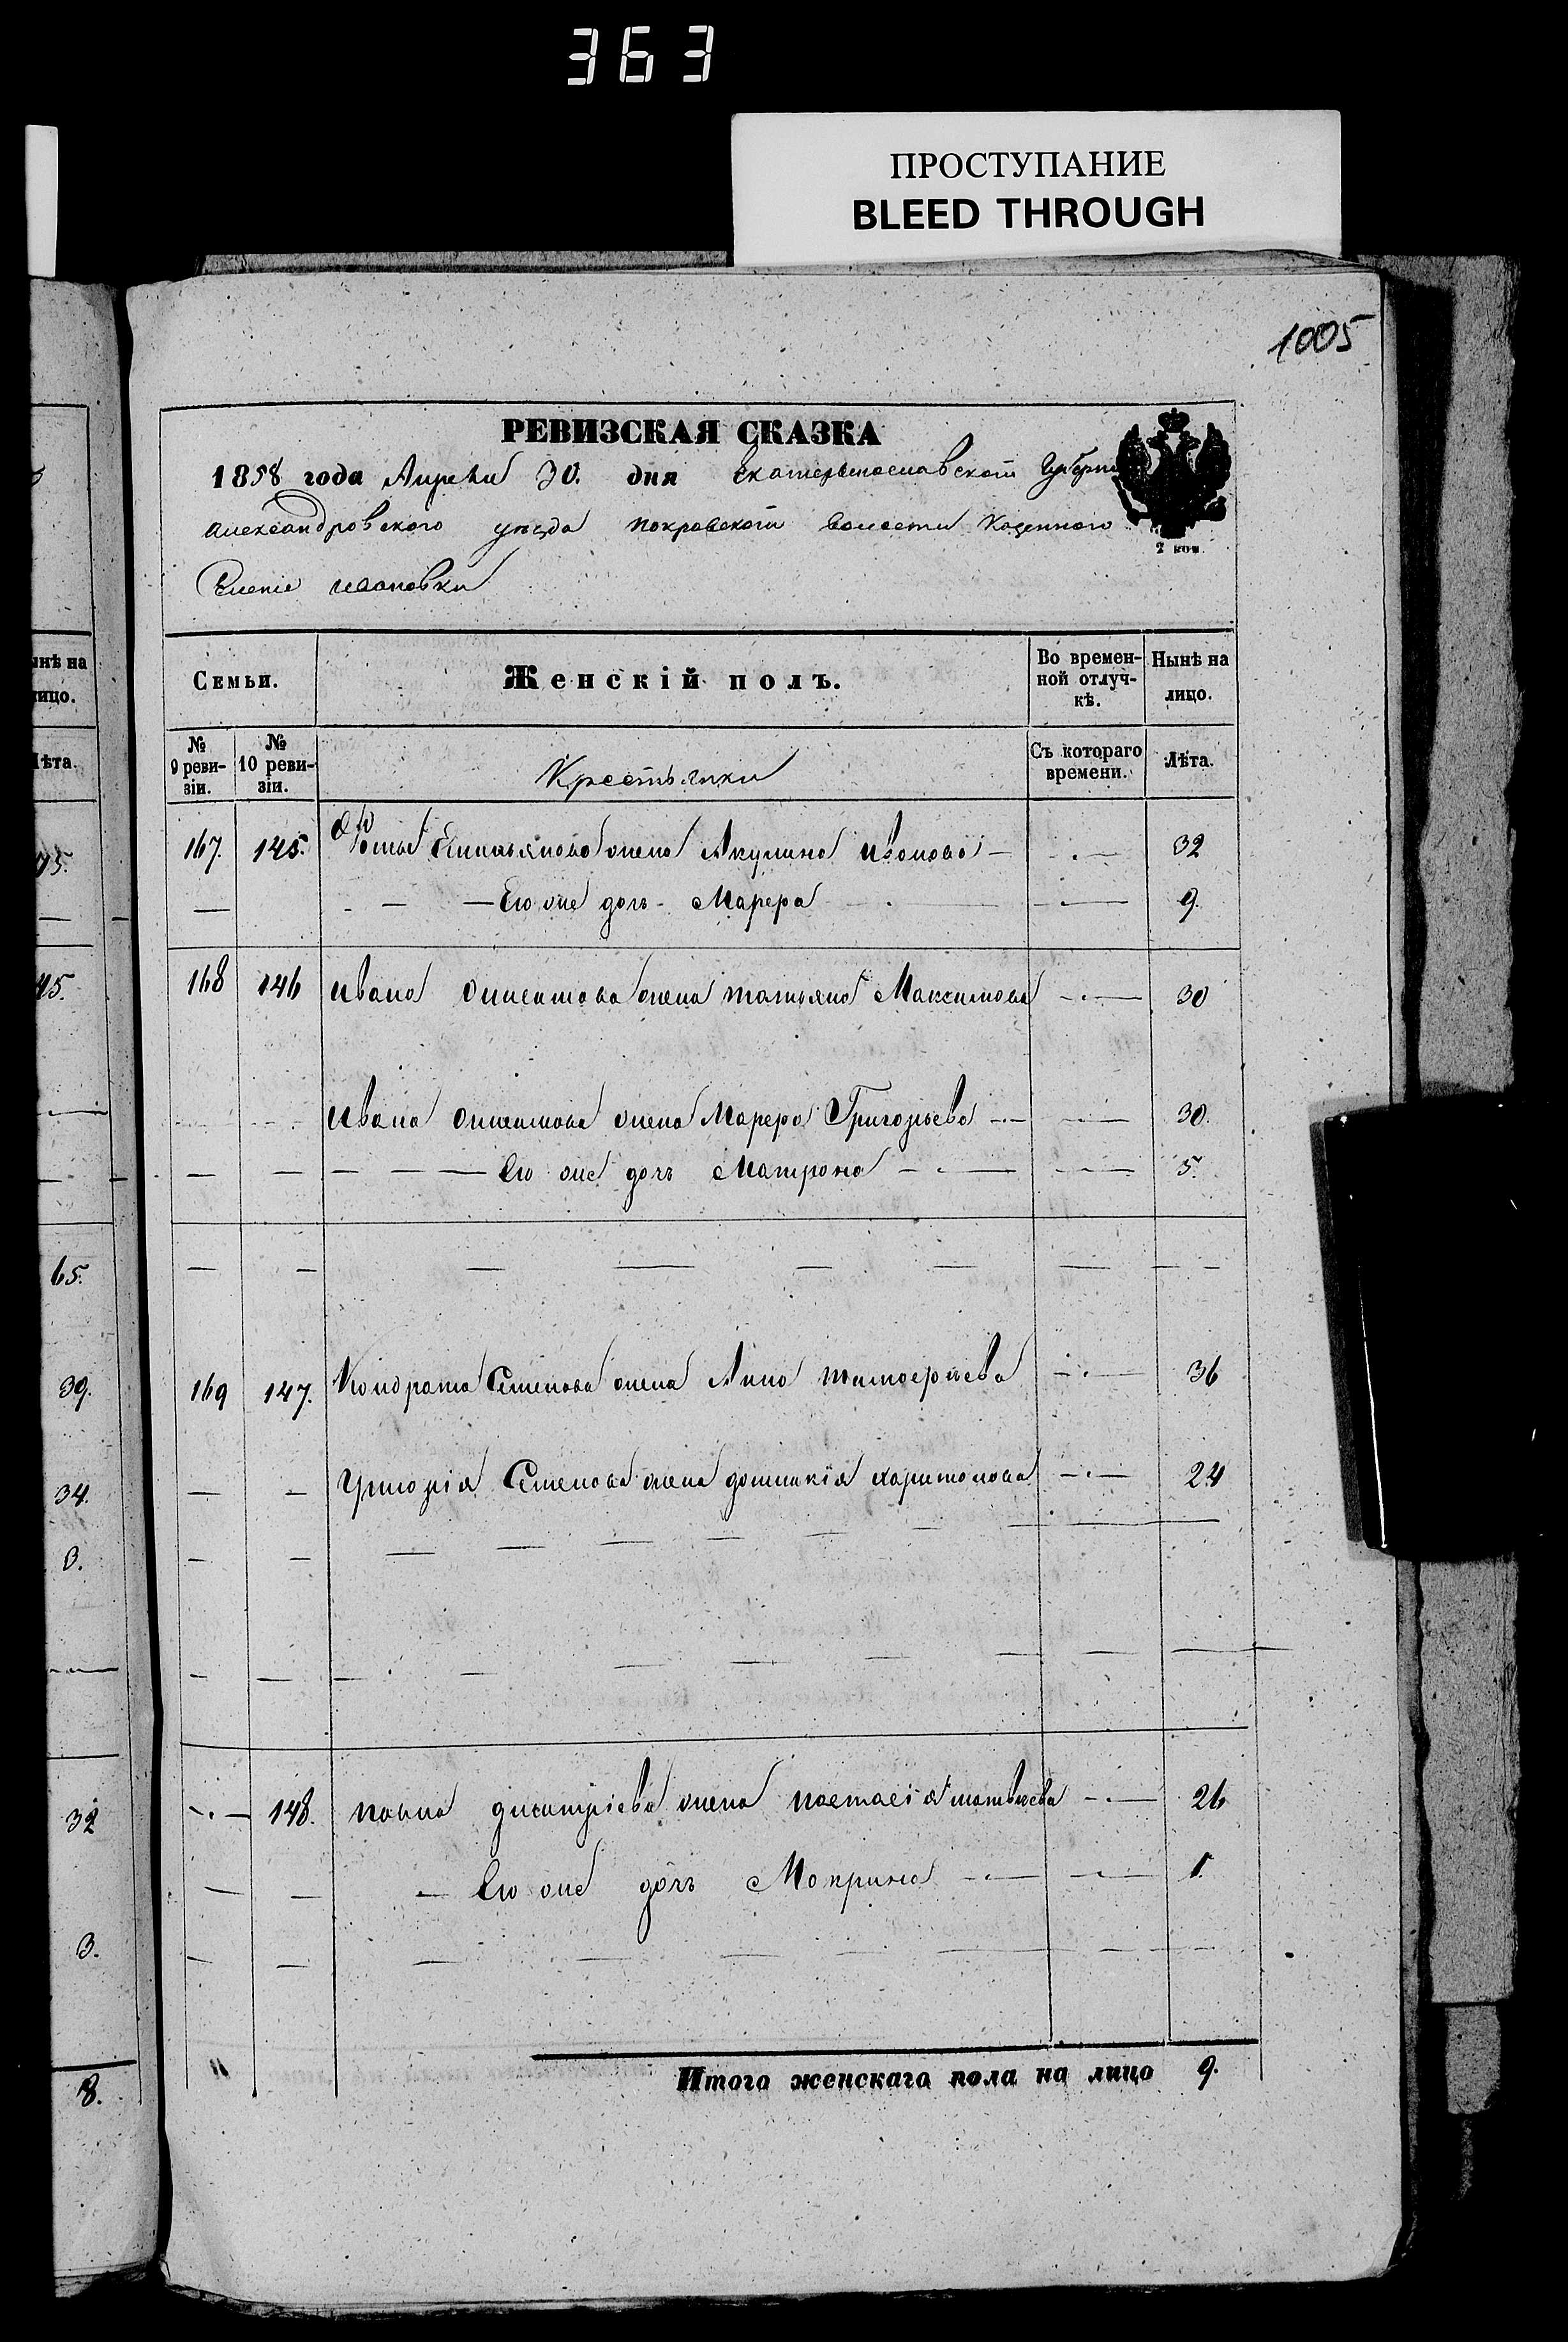 363
ПРОСТУПАНИЕ
BLEED THROUGH
1005
РЕВИЗСКАЯ СКАЗКА
1858 года Апреля 30. дня Екатеринославской Губерніи
Александровского уезда Покровской волости Казенного
Селенія Ивановки
2 коп.
Семьи. Женскій полъ. Во временной отлучкѣ. Нынѣ на лицо.
№ 9 ревизіи. № 10 ревизіи. Крестьянки Съ котораго времени. Лѣта.
167. 145. Фомы Емильянова жена Акулина Иванова 32
Его же дочь Марфа 9.
168 146 Ивана жена Татьяна Максимова 30
Ивана жена Марфа Григорьева 30.
Его же дочь Матрона 5.
169 147. Кондрата Семенова жена Анна Тимофѣева 36
Григорія Семенова жена Домникія Харитонова 24
148. Дмитріева жена Настасія Матвеева 26
Его же дочь Мокрина 1.
Итого женскаго пола на лицо 9.
ынѣ на
лицо.
Лѣта.
75.
45.
65.
39.
34.
3.
32
3.
8.